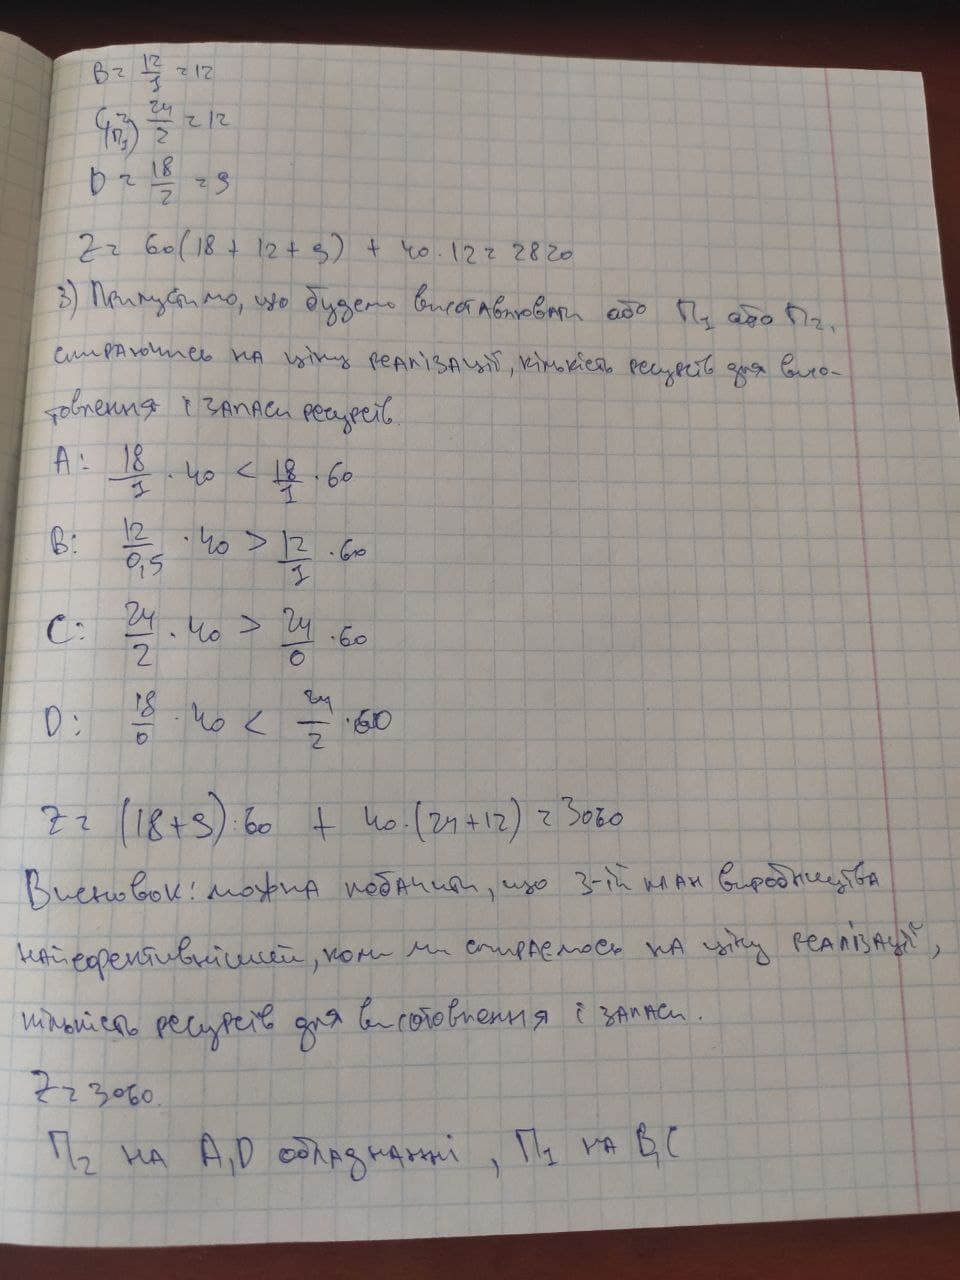 B = 12/1 = 12
C(П1) = 24/2 = 12
D = 18/2 = 9
Z = 60(18 + 12 + 9) + 40 · 12 = 2820
3) Припустимо, що будемо виготавлювати або П1 або П2,
спираючись на ціну реалізації, кількість ресурсів для виго-
товлення і запаси ресурсів.
A: 18/1 · 40 < 18/1 · 60
B: 12/0,5 · 40 > 12/1 · 60
C: 24/2 · 40 > 24/0 · 60
D: 18/0 · 40 < 24/2 · 60
Z = (18+9) · 60 + 40 · (24+12) = 3060
Висновок: можна побачити, що 3-ій план виробництва
найефективніший, коли ми спираємось на ціну реалізації,
кількість ресурсів для виготовлення і запаси.
Z = 3060.
П2 на A, D обладнанні, П1 на B, C